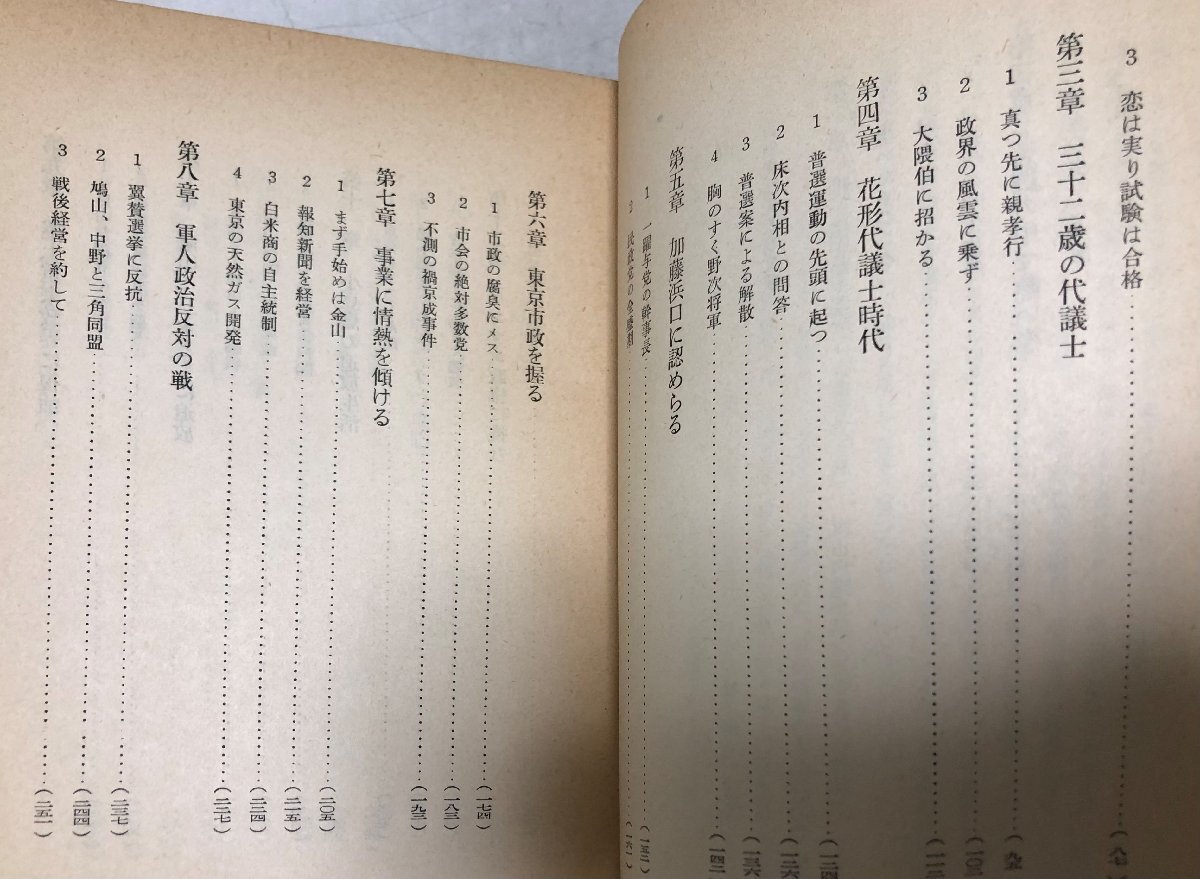 3 恋は実り試験は合格……(八七
第三章 三十二歳の代議士
1 真つ先に親孝行……(九五
2 政界の風雲に乗ず……(一〇三
3 大隈伯に招かる……(一一三
第四章 花形代議士時代
1 普選運動の先頭に起つ……(一二四
2 床次内相との問答……(一二六
3 普選案による解散……(一三六
4 胸のすく野次将軍……(一四二
第五章 加藤浜口に認めらる
1 一躍与党の幹事長……(一五二)
2 民政党の……(一六一)
第六章 東京市政を握る
1 市政の腐臭にメス……(一七四)
2 市会の絶対多数党……(一八三)
3 不測の禍京成事件……(一九三)
第七章 事業に情熱を傾ける
1 まず手始めは金山……(二〇五)
2 報知新聞を経営……(二一五)
3 白米商の自主統制……(二二四)
4 東京の天然ガス開発……(二二七)
第八章 軍人政治反対の戦
1 翼賛選挙に反抗……(二三七)
2 鳩山、中野と三角同盟……(二四四)
3 戦後経営を約して……(二五一)